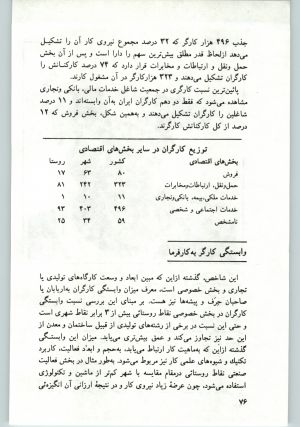 جذب ۴۹۶ هزار کارگر که ۳۲ درصد مجموع نیروی کار آن را تشکیل
می‌دهد ازلحاظ قدر مطلق بیشترین سهم را دارا است و پس از آن بخش
حمل‌ونقل و ارتباطات و مخابرات قرار دارد که ۷۴ درصد کارکنانش را
کارگران تشکیل می‌دهند و ۳۲۳ هزارکارگر در آن مشغول کارند.
پائین‌ترین نسبت کارگری در جمعیت شاغل خدمات مالی، بانکی وتجاری
مشاهده می‌شود که فقط دو دهم کارگران ایران به‌آن وابسته‌اند و ۱۱ درصد
شاغلین را کارگران تشکیل می‌دهند و به‌همین شکل، بخش فروش که ۱۲
درصد از کل کارکنانش کارگرند.
توزیع کارگران در سایر بخش‌های اقتصادی
بخش‌های اقتصادی کشور شهر روستا
فروش ۸۰ ۶۳ ۱۷
حمل‌ونقل، ارتباطات‌ومخابرات ۳۲۳ ۲۴۲ ۸۱
خدمات ملکی،بیمه، بانکی‌وتجاری ۱۱ ۱۰ ۱
خدمات اجتماعی و شخصی ۴۹۶ ۴۰۳ ۹۳
نامشخص ۵۹ ۳۴ ۲۵
وابستگی کارگر به‌کارفرما
این شاخص، گذشته ازاین که مبین ابعاد و وسعت کارگاه‌های تولیدی یا
تجاری و بخش خصوصی است، معرف میزان وابستگی کارگران به‌اربابان یا
صاحبان حرف و پیشه‌ها نیز هست. بر مبنای این بررسی نسبت وابستگی
کارگران در بخش خصوصی نقاط روستایی بیش از ۳ برابر نقاط شهری است
و حتی این نسبت در برخی از رشته‌های تولیدی از قبیل ساختمان و معدن از
این حد نیز تجاوز می‌کند و عمق بیش‌تری می‌یابد. این میزان وابستگی
گذشته از این که به‌ماهیت کار ارتباط می‌یابد، به‌حجم و ابعاد فعالیت، کاربرد
تکنیک و شیوه‌های علمی کار نیز مربوط می‌شود. به‌طور مثال در بخش فعالیت
صنعتی نقاط روستایی درمقام مقایسه با شهر کم‌تر از ماشین و تکنولوژی
استفاده می‌شود، چون عرضهٔ زیاد نیروی کار و در نتیجهٔ ارزانی آن انگیزه‌ئی
۷۶